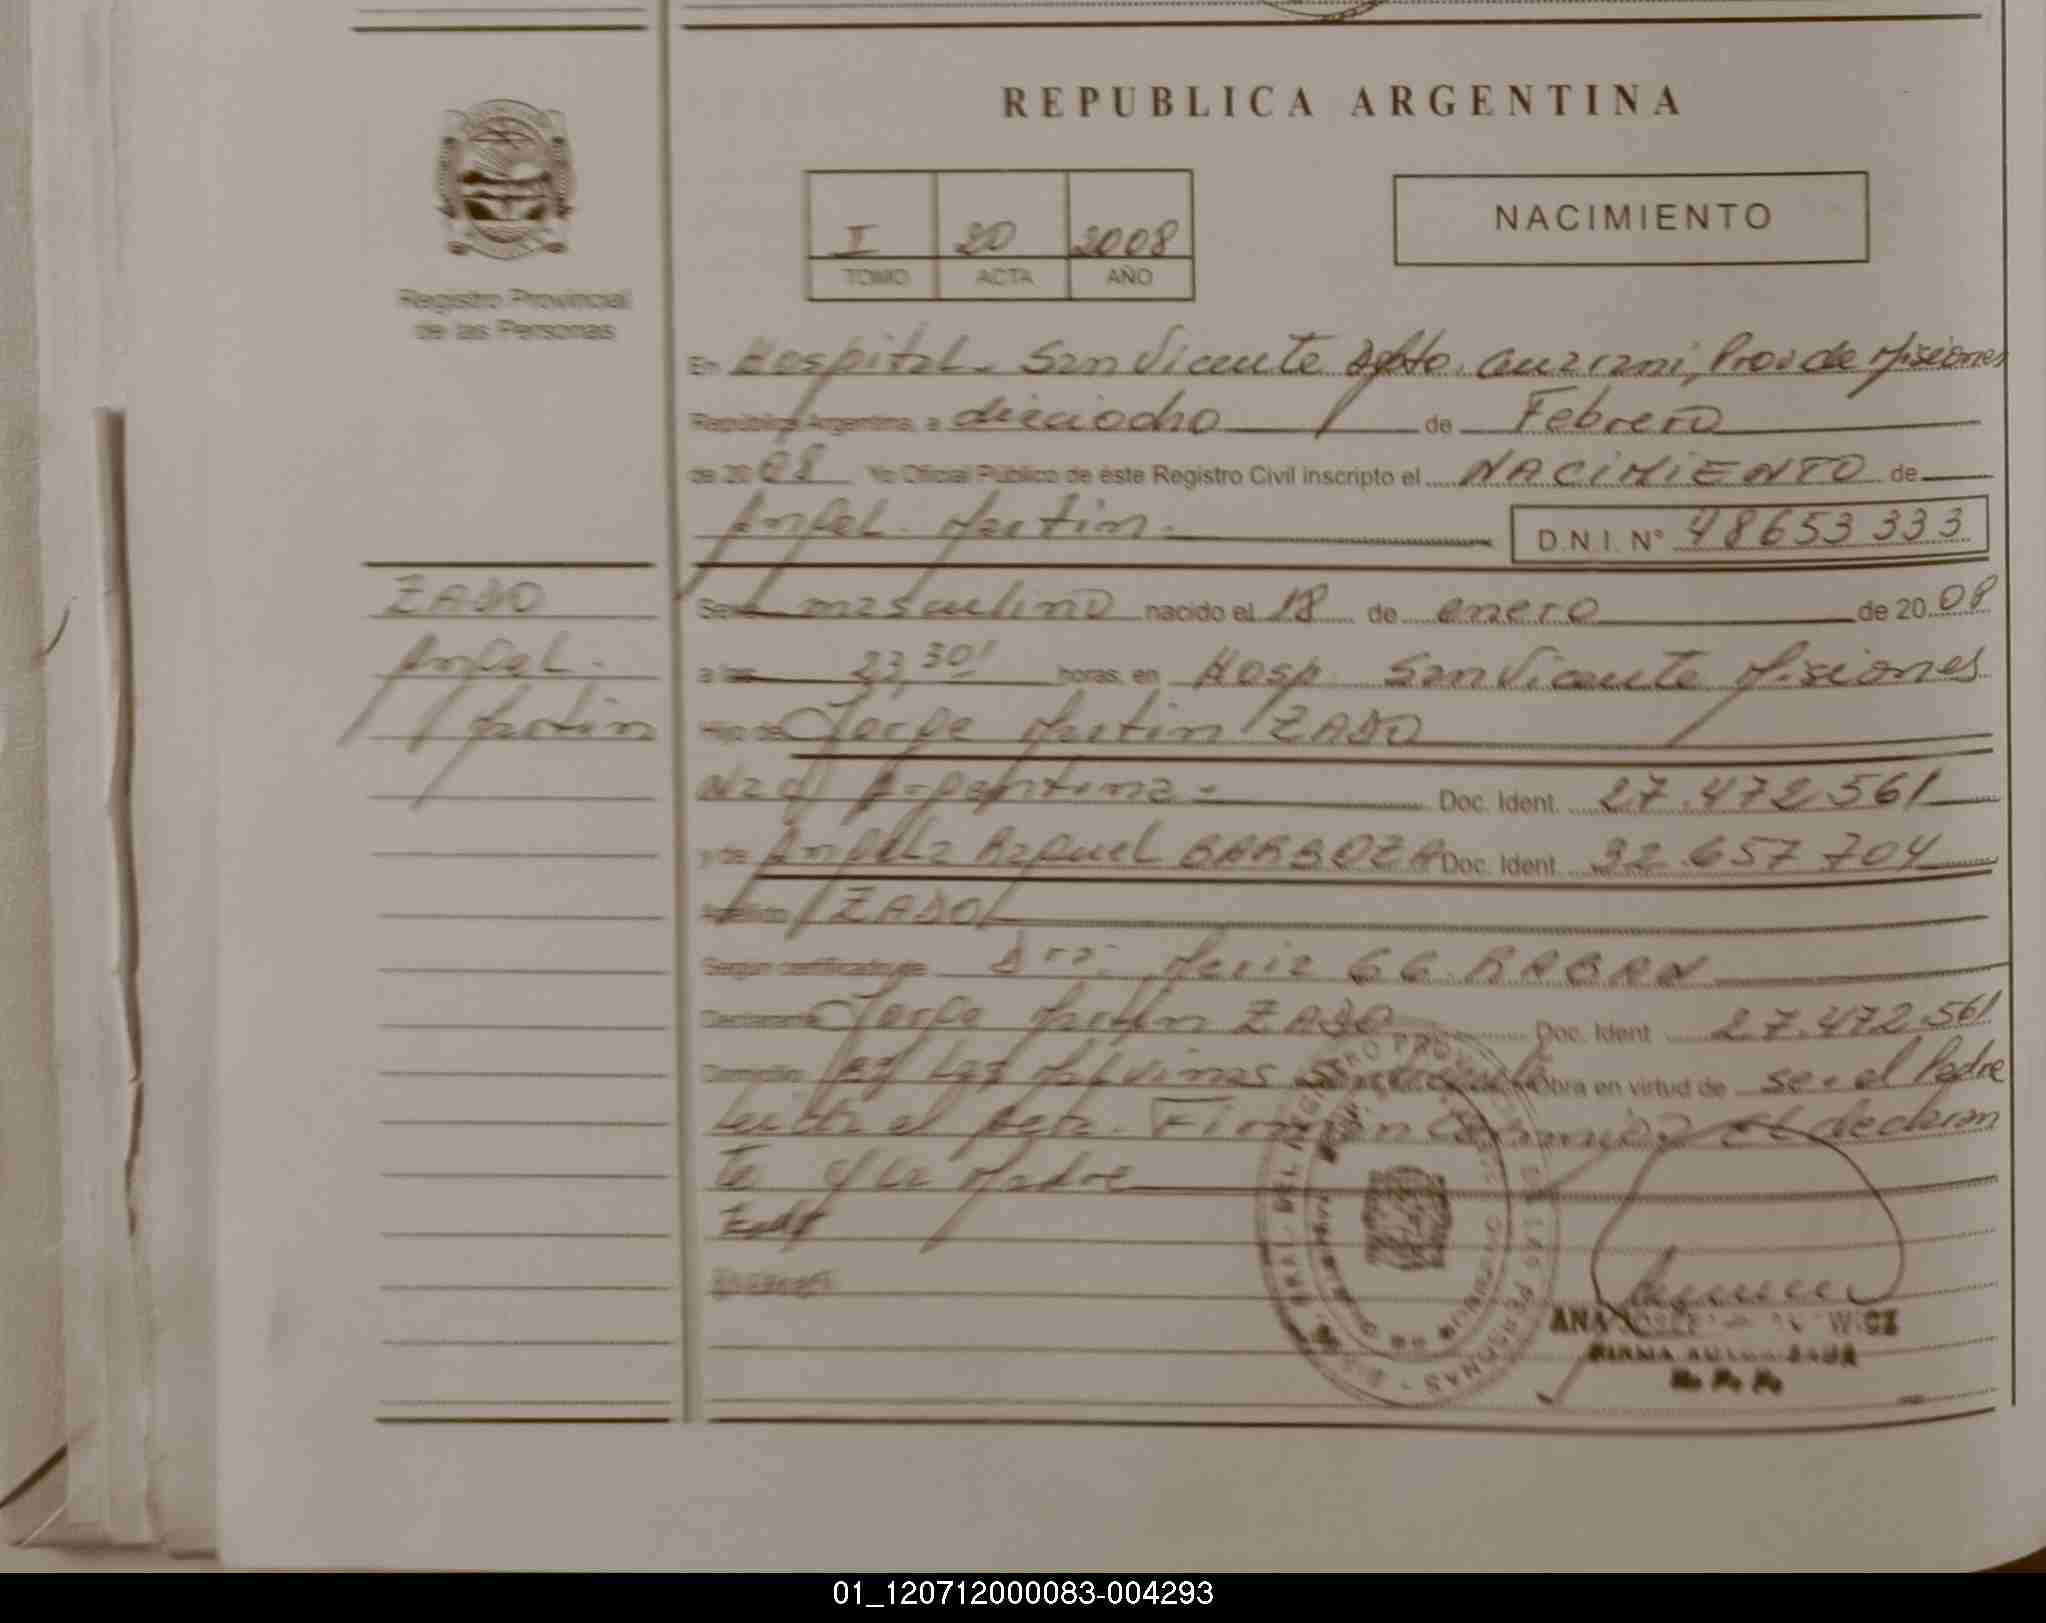 REPUBLICA ARGENTINA
I 20 2008
TOMO ACTA AÑO
NACIMIENTO
Registro Provincial
de las Personas
En Hospital. San Vicente Dpto. Guarani, Prov de Misiones
República Argentina, a dieciocho de Febrero
de 2008 Yo Oficial Público de éste Registro Civil inscripto el NACIMIENTO de
Angel. Martin.
D.N.I. Nº 48653333
ZADO
Angel.
Martin
Sexo masculino nacido el 18 de enero de 2008
a las 23,30' horas. en Hosp. San Vicente Misiones
Hijo de Jorge Martin ZADO
Argentina - Doc. Ident. 27.472.561
y de Angela Raquel BARBOZA Doc. Ident. 32.657.704
Apellido ZADO
Según certificado de Dra: 66
Declarante Jorge Martin ZADO Doc. Ident 27.472.561
Domicilio Las Malvinas San Vicente Obra en virtud de ser el Padre
Leida el Acta. Firman el declaran
te y la Madre
REGISTRO PROVINCIAL DE LAS PERSONAS
ANA
01_120712000083-004293